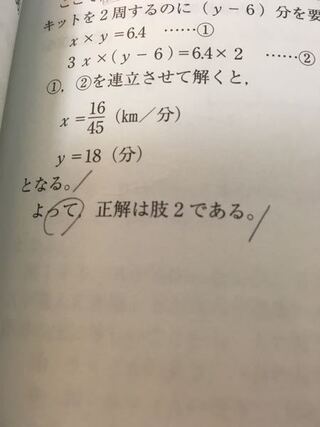 ここで
キットを2周するのに(y-6)分を要
x×y=6.4 ……①
3x×(y-6)=6.4×2 ……②
①, ②を連立させて解くと,
x=16/45(km/分)
y=18(分)
となる。
よって, 正解は肢2である。